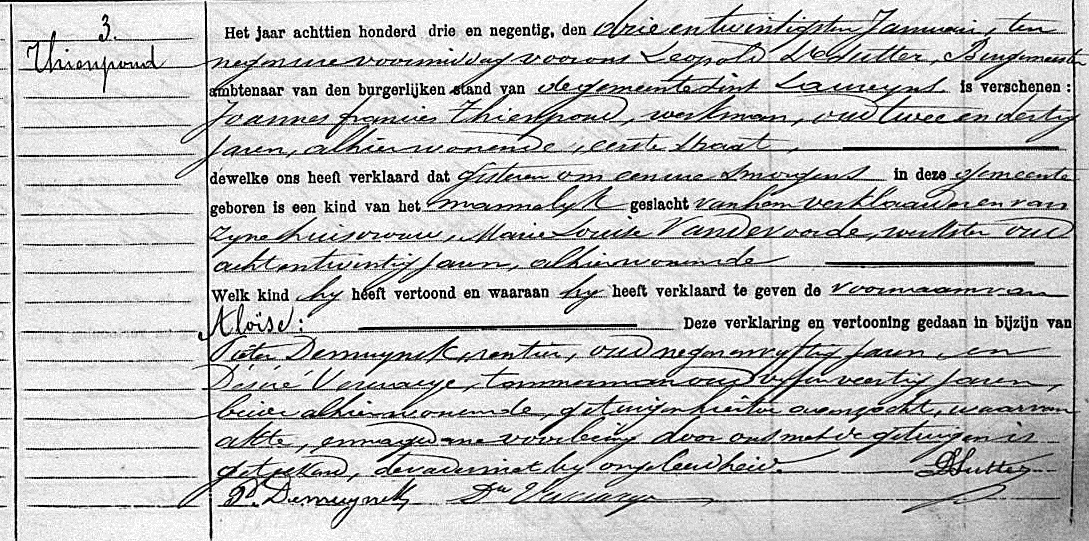 3.
Thienpond
Het jaar achttien honderd drie en negentig, den drie en twintigsten Januari, ten
negen ure voormiddag voor ons Leopold DeSutter, Burgemeester
ambtenaar van den burgerlijken stand van de gemeente Sint Laureyns is verschenen :
Joannes francies Thienpond, werkman, oud twee en dertig
jaren, alhier wonende, eerste straat,
dewelke ons heeft verklaard dat gisteren om eene ure smorgens in deze gemeente
geboren is een kind van het mannelyk geslacht van hem verklaarder en van
zyne huisvrouw, Marie Louise Vandevoorde, werkster oud
acht en twintig jaren, alhier wonende
Welk kind hy heeft vertoond en waaraan hy heeft verklaard te geven de voornaam van
Aloïse : Deze verklaring en vertooning gedaan in bijzijn van
Pieter Demuynck, rentier, oud negen en vyftig jaren, en
Désiré Verhaege, timmerman oud vyf en veertig jaren,
beide alhier wonende, getuigen hiertoe aenzocht, waarvan
akte, en na gedane voorlezing door ons met de getuigen is
geteekend, de vader niet by ongeleerdheid.
DSutter
Pr. Demuynck, Dré Verhaege